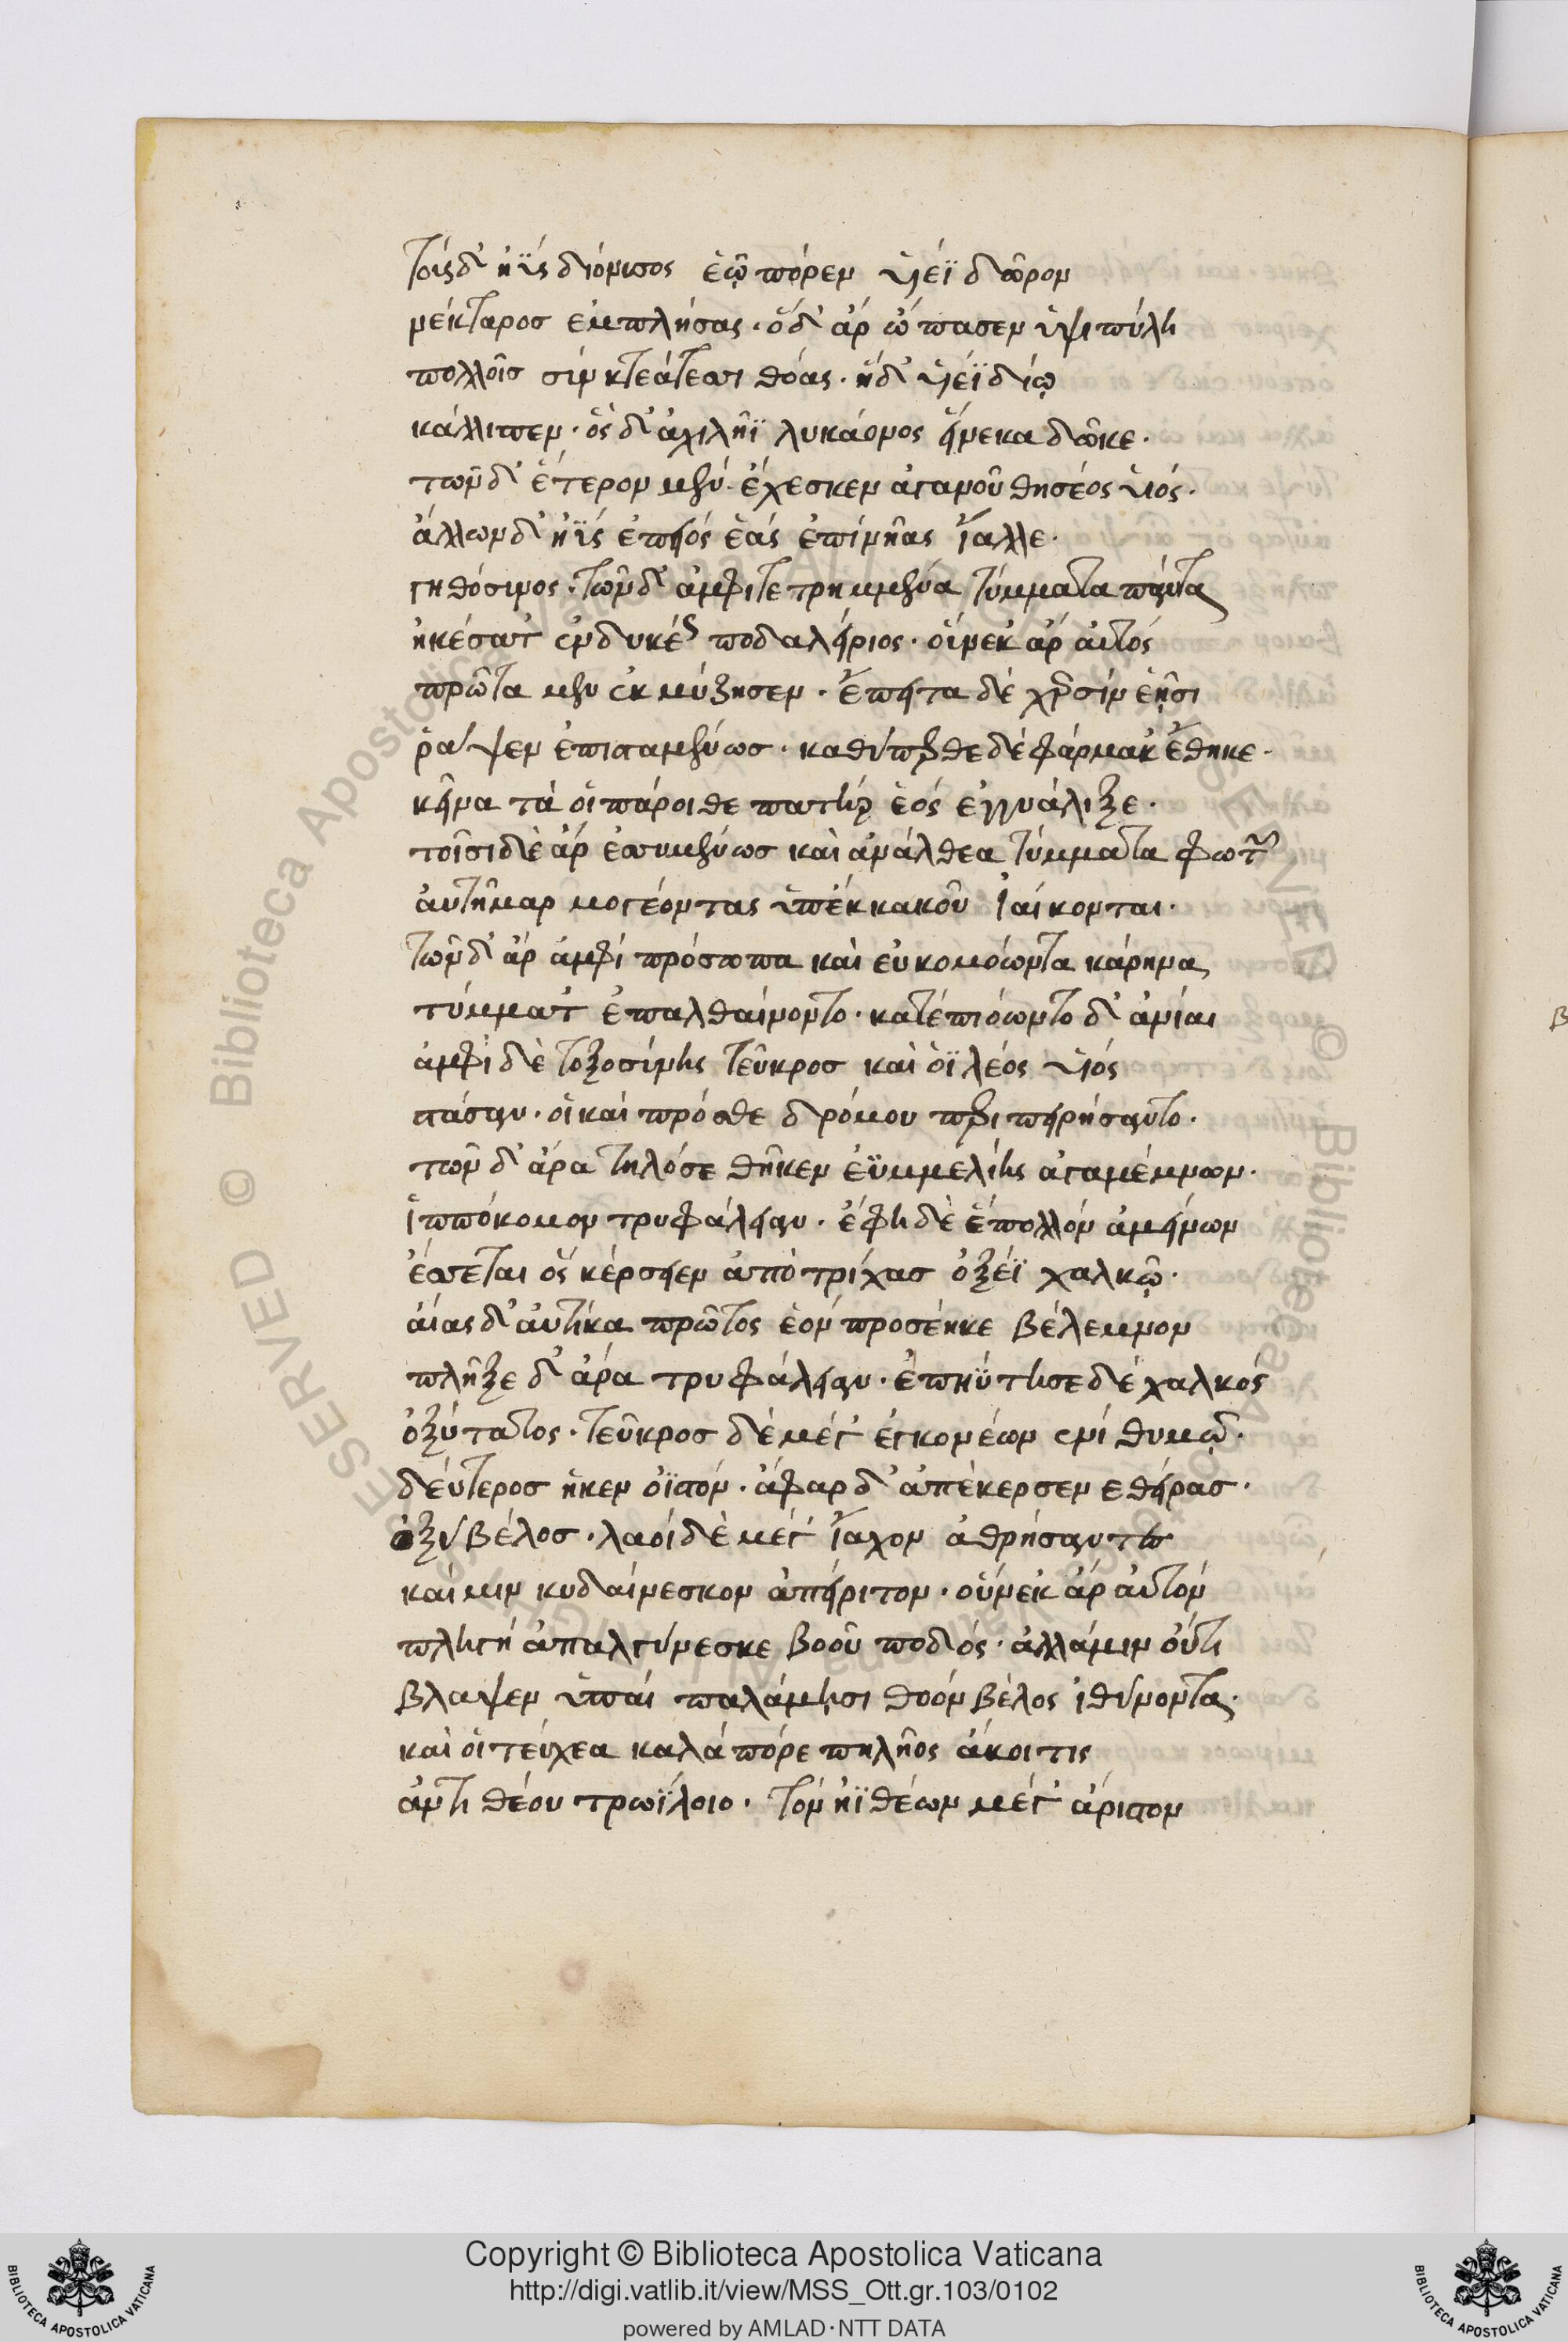 τοίς δ' ηΰς διόνυσος ἑῷ πόρεν υἱέϊ δῶρον
νέκταρος ἐμπλήσας· ὁ δ' ἄρ ὤπασεν ὑψιπύλη
πολλοῖς σύν κτεάτεσσι θόας· ἠδ' υἱέϊ δίῳ
κάλλιπεν· ὃς δ' ἀχιλῆϊ λυκάονος εἵνεκα δῶκε·
τῶν δ' ἕτερον μέν ἔχεσκεν ἀγανοῦ θησέος υἱός·
ἄλλων δ' ἠΰς ἐπειός ἑάς ἐπί νῆας ἴαλλε·
γηθόσυνος· τῶν δ' ἀμφιτετρημμένα τύμματα πάντα
ἠκέσατ' ἐνδυκέως ποδαλείριος· οὕνεκ' ἄρ αὐτός
πρῶτα μὲν ἐκμύζησεν· ἔπειτα δέ χερσίν ἑῇσι
ῥάψεν ἐπισταμένως· καθύπερθε δέ φάρμακ' ἔθηκε·
κεῖνα τά οἱ πάροιθε πατήρ ἑός ἐγγυάλιξε·
τοῖσι δὲ ἄρ ἐσσυμένως καὶ ἀνάλθεα τύμματα φωτῶν
αὐτῆμαρ μογέοντας ὑπέκ κακοῦ ἰαίνονται·
τῶν δ' ἄρ ἀμφί πρόσωπα καὶ εὐκομόωντα κάρηνα
τύμματ' ἐπαλθαίνοντο· κατέπιόωντο δ' ἀνίαι
ἀμφὶ δὲ τοξοσύνης τεῦκρος καὶ ὀϊλέος υἱός
στάσαν· οἳ καὶ πρόσθε δρόμου πέρι πειρήσαντο·
τῶν δ' ἄρα τηλόσε θῆκεν ἐϋμμελίης ἀγαμέμνων·
ἱππόκομον τρυφάλειαν· ἔφη δὲ ἔπολλόν ἀμείνων
ἔσσεται ὅς κέρσειεν ἀπὸ τρίχας ὀξέϊ χαλκῷ·
αἴας δ' αὐτίκα πρῶτος ἑόν προσέηκε βέλεμνον
πλῆξε δ' ἄρα τρυφάλειαν· ἐπηΰτησε δέ χαλκός
ὀξύτατος· τεῦκρος δὲ μέγ' ἐγκονέων ἐνί θυμῷ·
δεύτερος ἧκεν ὀϊστόν· ἄφαρ δ' ἀπέκερσεν ἐθείρας·
ὀξύ βέλος· λαοί δὲ μέγ' ἴαχον ἀθρήσαντες
καί μιν κυδαίνεσκον ἀπείριτον· οὕνεκ' ἄρ αὐτόν
πληγή ἀπαλγύνεσκε βοοῦ ποδός· ἀλλά μιν οὔτι
βλαψεν ὑπαί παλάμησι θοόν βέλος ἰθύνοντα·
καὶ οἱ τεύχεα καλά πόρε πηλῆος ἄκοιτις
ἀντιθέου τρωΐλοιο· τόν ἠϊθέων μέγ' ἄριστον
Copyright © Biblioteca Apostolica Vaticana
http://digi.vatlib.it/view/MSS_Ott.gr.103/0102
powered by AMLAD·NTT DATA